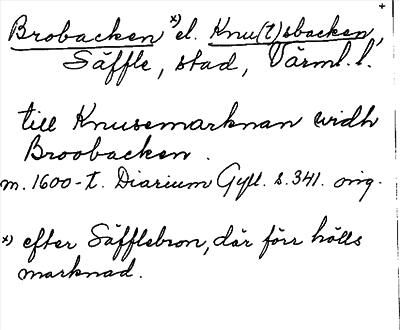 Brobacken x) el. Knu(t)sbacken,
Säffle, stad, Värml. l.
till Knusemarknan widh
Broobacken.
m. 1600-t. Diarium Gyll. s. 341. orig.
x) efter Säfflebron, där förr hölls
marknad.